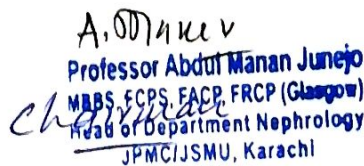 A. Manan
Professor Abdul Manan Junejo
MBBS, FCPS, FACP, FRCP (Glasgow)
Chairman
Head of Department Nephrology
JPMC/JSMU, Karachi